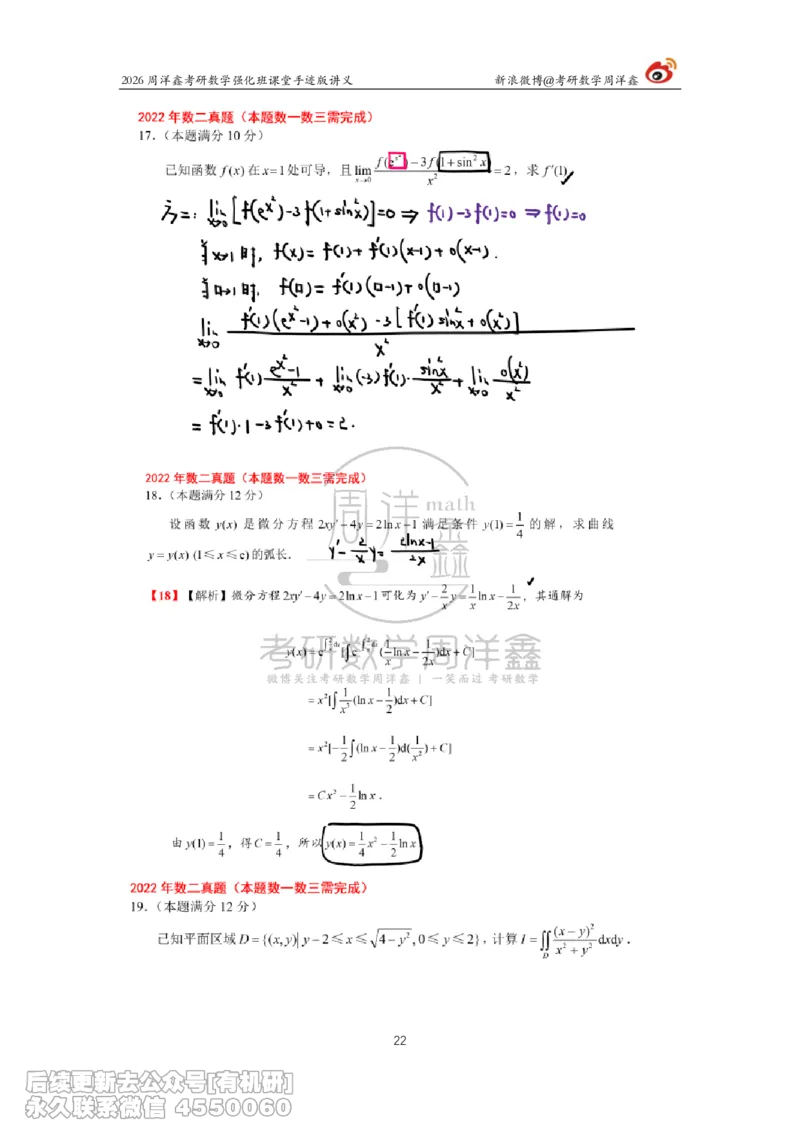 2026 周洋鑫考研数学强化班课堂手迹版讲义 新浪微博@考研数学周洋鑫
2022 年数二真题（本题数一数三需完成）
17.（本题满分 10 分）
已知函数 f(x) 在 x=1 处可导，且 lim_{x→0} [f(e^{x²})−3f(1+sin²x)]/x² = 2，求 f′(1)
lim_{x→0} [f(e^{x²})−3f(1+sin²x)]=0 ⇒ f(1)−3f(1)=0 ⇒ f(1)=0
当x→1时, f(x)= f(1)+ f′(1)(x−1)+ o(x−1).
当□→1时, f(□)= f′(1)(□−1)+ o(□−1)
lim_{x→0} {f′(1)(e^{x²}−1)+o(x²) −3[f′(1)sin²x+o(x²)]}/x²
= lim_{x→0} f′(1)·(e^{x²}−1)/x² + lim_{x→0} (−3)f′(1)·sin²x/x² + lim_{x→0} o(x²)/x²
= f′(1)·1−3f′(1)+0=2.
2022 年数二真题（本题数一数三需完成）
18.（本题满分 12 分）
设函数 y(x) 是微分方程 2xy′−4y=2ln x−1 满足条件 y(1)=1/4 的解，求曲线
y=y(x) (1≤x≤e)的弧长.
y′− (2/x)y= (2lnx−1)/(2x)
【18】【解析】微分方程 2xy′−4y=2ln x−1 可化为 y′−(2/x)y=(1/x)ln x−1/(2x)，其通解为
y(x)=e^{∫(2/x)dx}[∫e^{−∫(2/x)dx}((1/x)ln x−1/(2x))dx+C]
=x²[∫(1/x³)(ln x−1/2)dx+C]
=x²[−(1/2)∫(ln x−1/2)d(1/x²)+C]
=Cx²−(1/2)ln x.
由 y(1)=1/4，得 C=1/4，所以 y(x)=(1/4)x²−(1/2)ln x
周洋鑫 math
考研数学周洋鑫
微博关注考研数学周洋鑫 | 一笑而过 考研数学
2022 年数二真题（本题数一数三需完成）
19.（本题满分 12 分）
已知平面区域 D={(x,y)| y−2≤x≤√(4−y²),0≤y≤2}，计算 I=∬_D (x−y)²/(x²+y²) dxdy.
22
后续更新去公众号[有机研]
永久联系微信 4550060